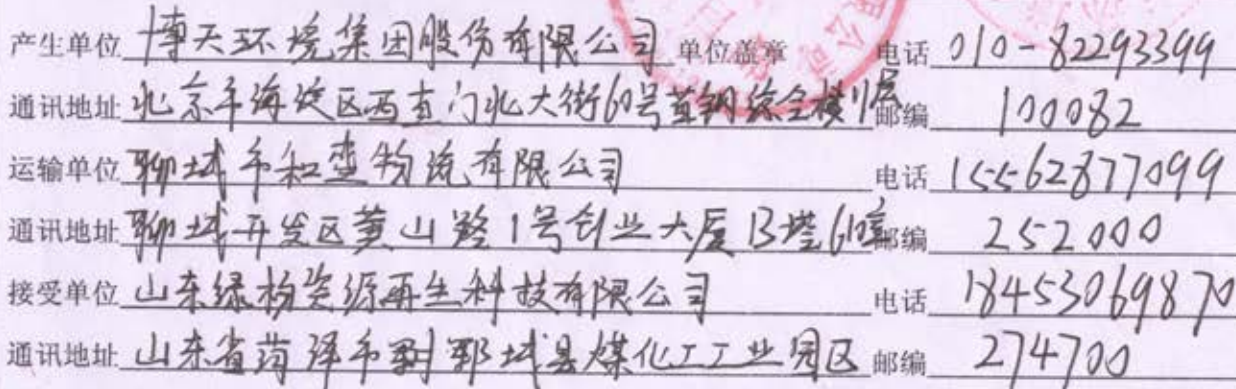 产生单位 博天环境集团股份有限公司 单位盖章 电话 010-82293399
通讯地址 北京市海淀区西直门北大街60号首钢综合楼11层 邮编 100082
运输单位 聊城市和杰物流有限公司 电话 15562877099
通讯地址 聊城开发区黄山路1号创业大厦B塔610 邮编 252000
接受单位 山东绿杨资源再生科技有限公司 电话 18453069870
通讯地址 山东省菏泽市郓城县煤化工工业园区 邮编 274700